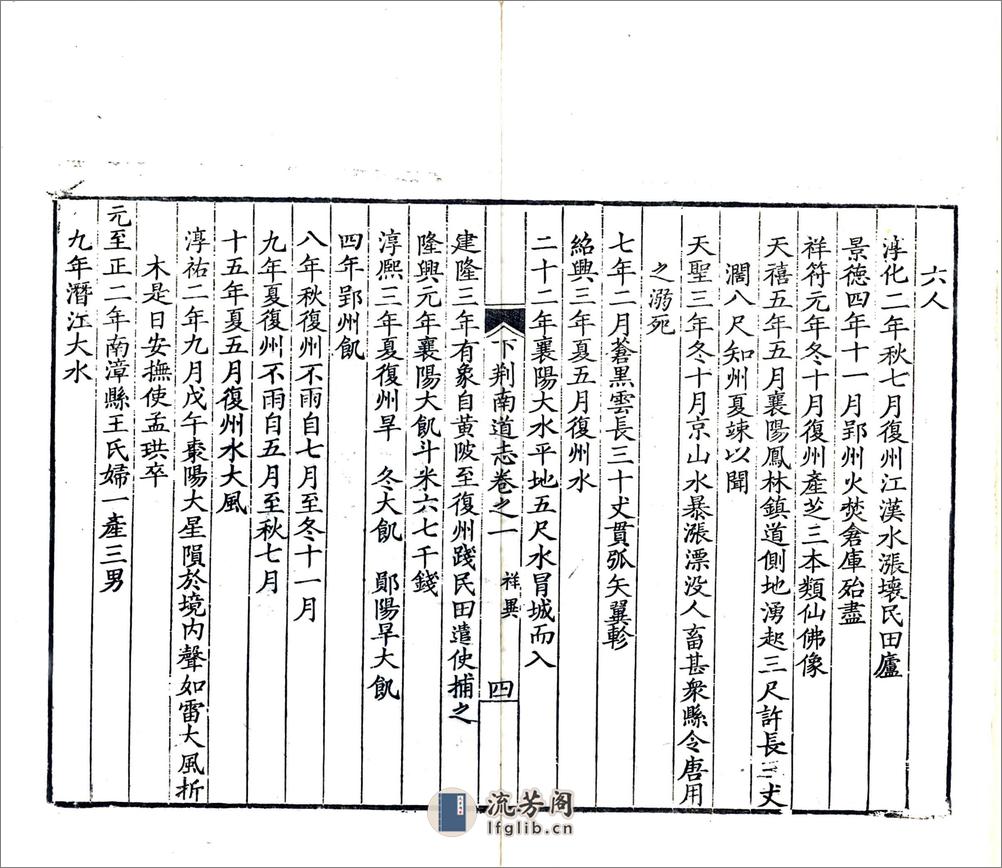 六人
淳化二年秋七月復州江漢水漲壞民田廬
景德四年十一月郢州火焚倉庫殆盡
祥符元年冬十月復州產芝三本類仙佛像
天禧五年五月襄陽鳳林鎮道側地湧起三尺許長三丈
濶八尺知州夏竦以聞
天聖三年冬十月京山水暴漲漂没人畜甚衆縣令唐用
之溺死
七年二月蒼黑雲長三十丈貫弧矢翼軫
紹興三年夏五月復州水
二十二年襄陽大水平地五尺水冒城而入
下荆南道志卷之一 祥異 四
建隆三年有象自黃陂至復州踐民田遣使捕之
隆興元年襄陽大飢斗米六七千錢
淳熙三年夏復州旱 冬大飢 鄖陽旱大飢
四年郢州飢
八年秋復州不雨自七月至冬十一月
九年夏復州不雨自五月至秋七月
十五年夏五月復州水大風
淳祐二年九月戊午棗陽大星隕於境内聲如雷大風折
木是日安撫使孟珙卒
元至正二年南漳縣王氏婦一產三男
九年潛江大水
流芳阁
lfglib.cn